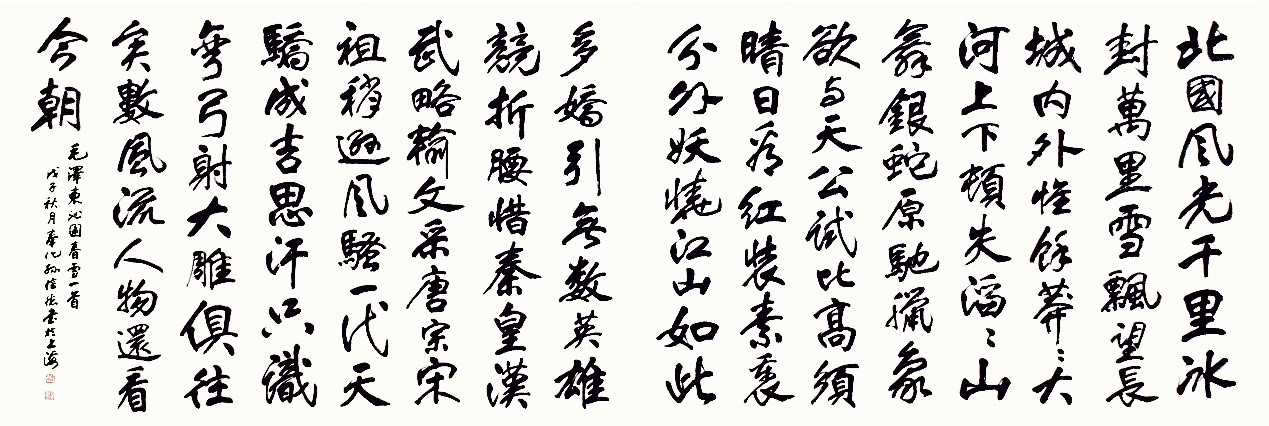 北國风光千里冰
封萬里雪飄望長
城内外惟餘莽〻大
河上下頓失滔〻山
舞銀蛇原馳臘象
欲与天公試比高須
晴日看紅裝素裹
分外妖嬈江山如此
多嬌引無数英雄
競折腰惜秦皇漢
武略輸文采唐宗宋
祖稍遜风騷一代天
驕成吉思汗只識
彎弓射大雕俱往
矣數風流人物還看
今朝
毛澤東沁園春雪一首
戊子秋月奉化孫信德書於上海